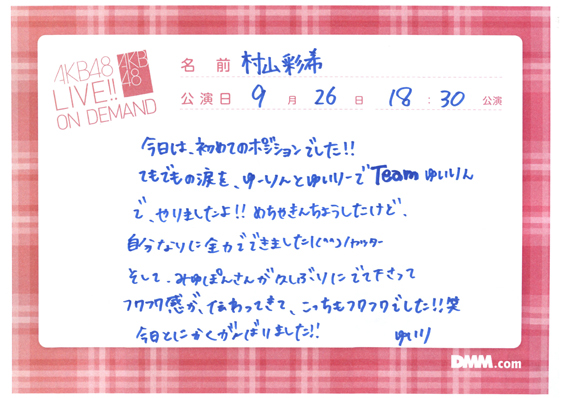 AKB48
LIVE!!
ON DEMAND
AKB
48
名前 村山彩希
公演日 9月26日 18:30公演
今日は、初めてのポジションでした!!
てもでもの涙を、ゆーりんとゆいりーでTeamゆいりん
で、やりましたよ!! めちゃきんちょうしたけど、
自分なりに全力でできました!(^^)/ヤッター
そして、みゆぽんさんが久しぶりにでて下さって
フワフワ感が、伝わってきて、こっちもフワフワでした!!笑
今日とにかくがんばりました!!
ゆいり
DMM.com